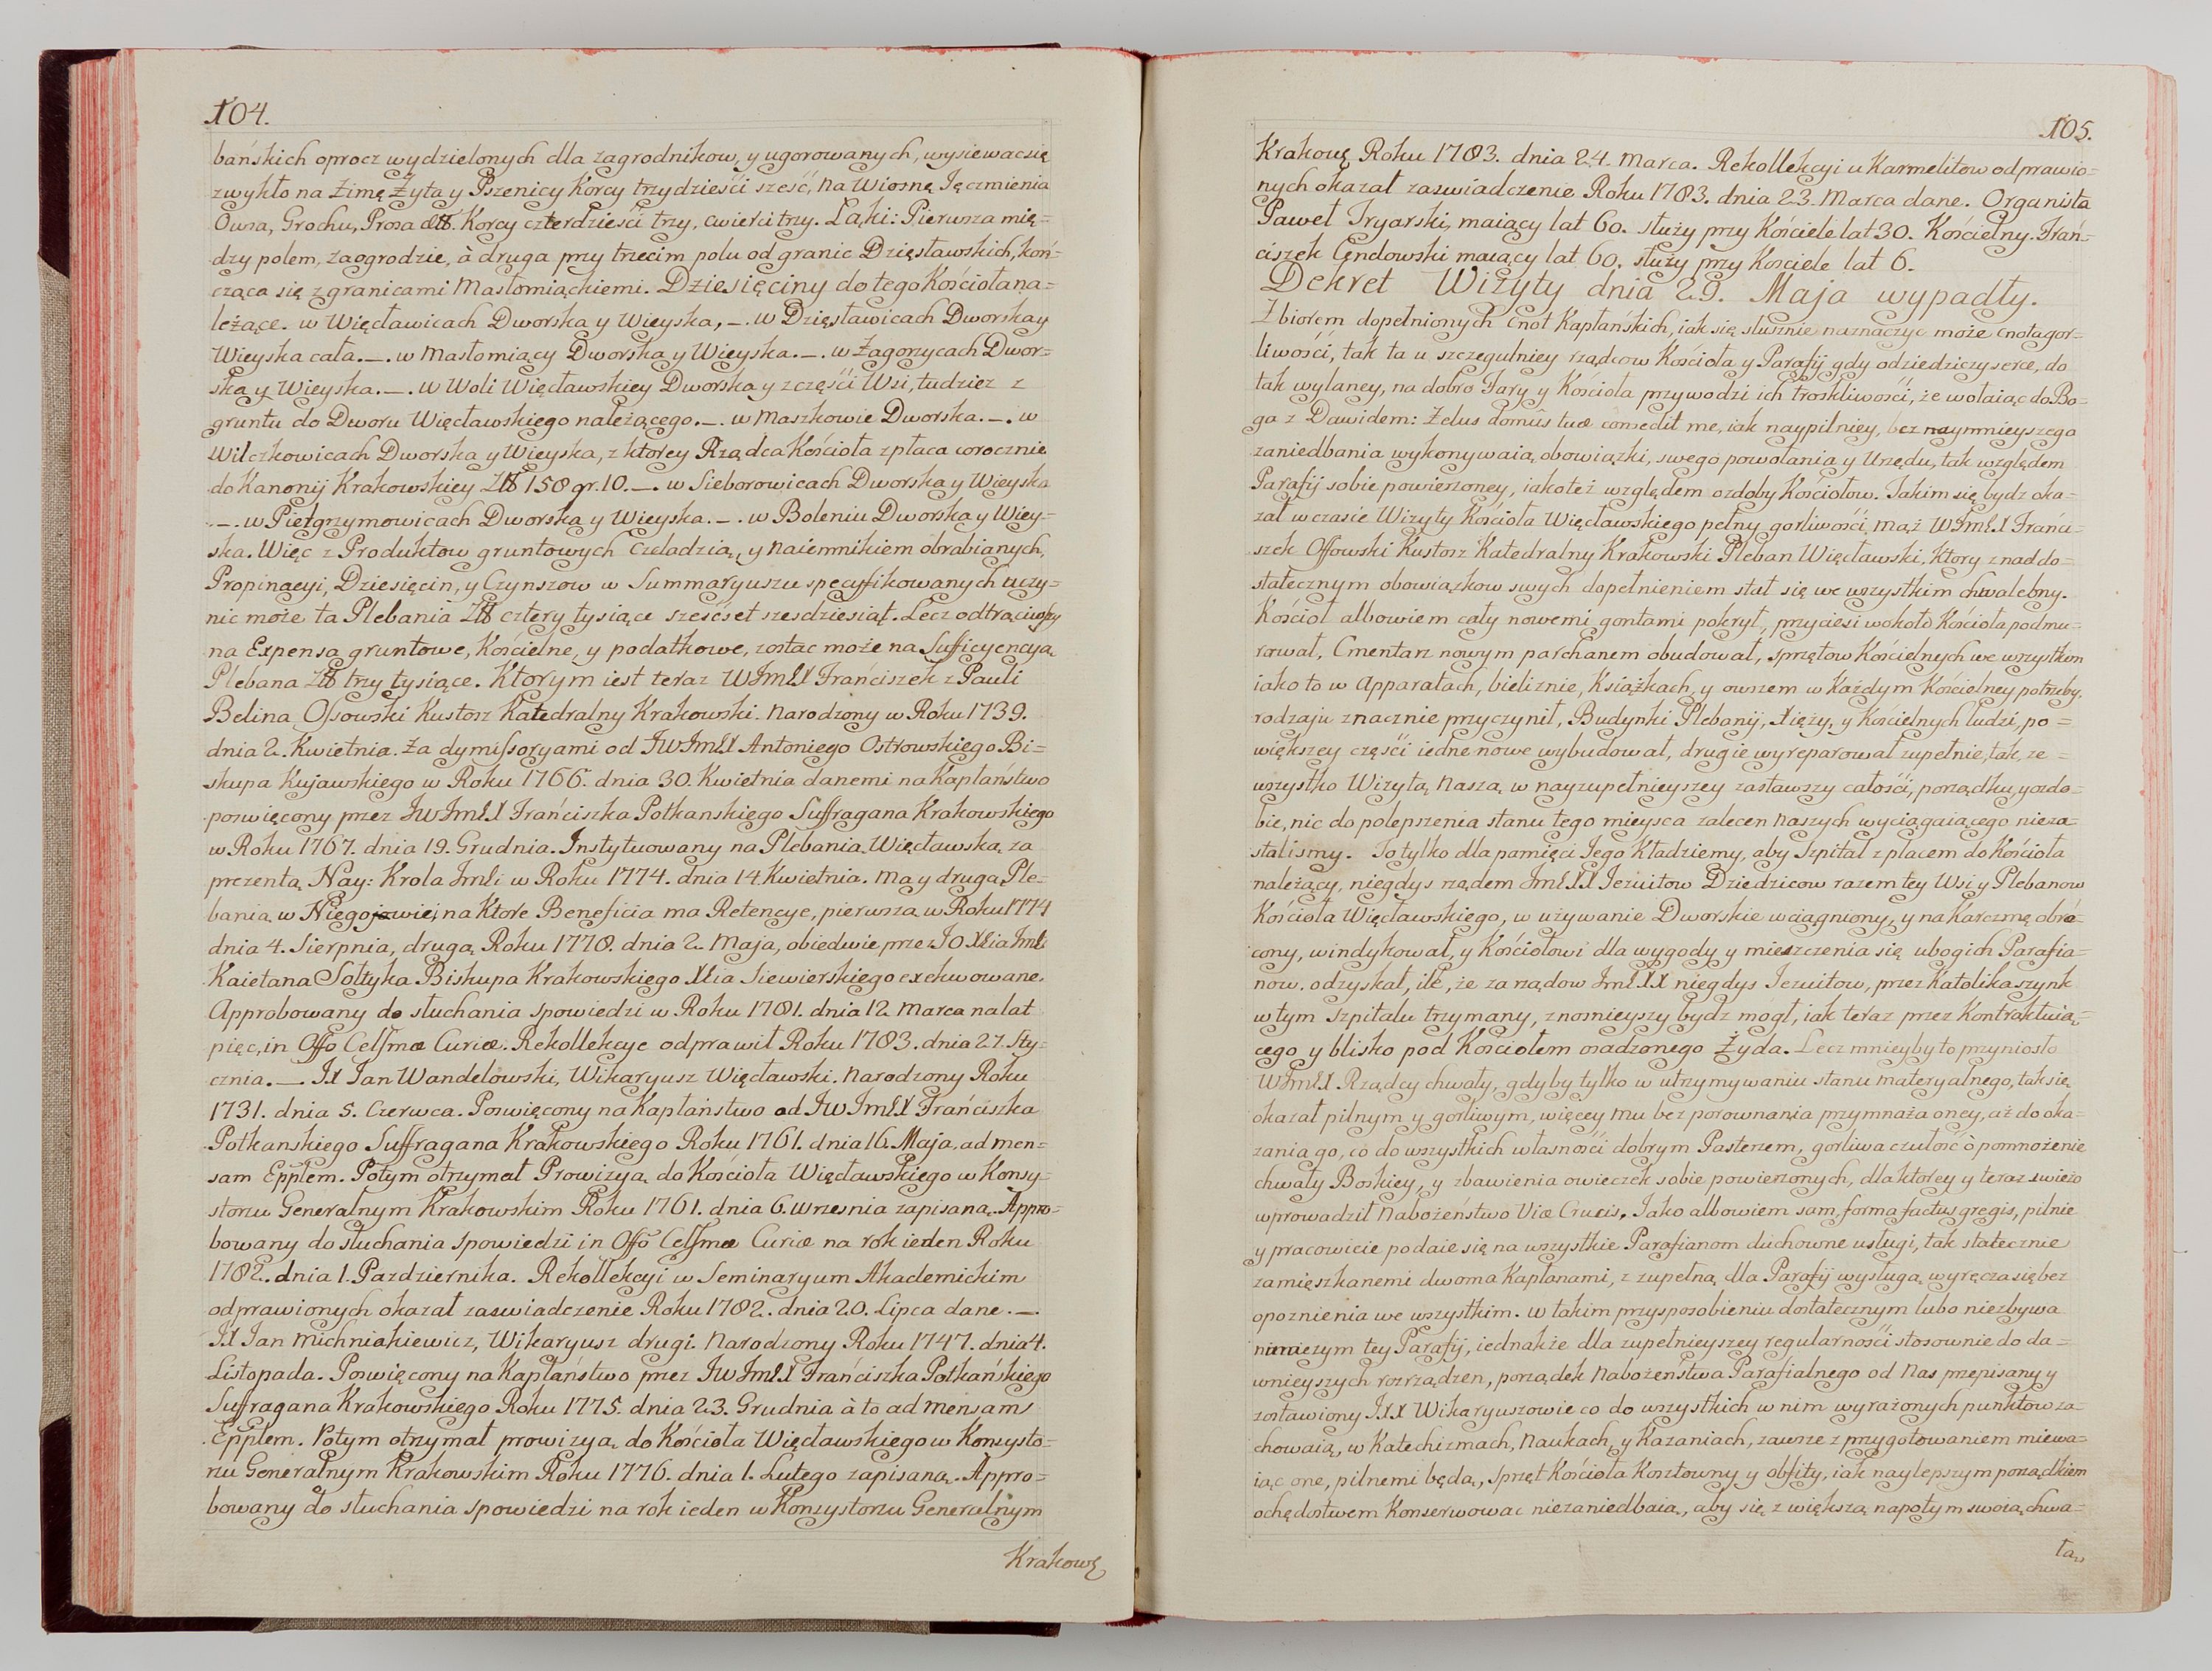 104.
bańskich oprocz wydzielonych dla zagrodnikow, y ugorowanych, wysiewac się
zwykło na Zimę Żyta y Pszenicy Korcy trzydzieści sześć, na Wiosnę Jęczmienia
Owsa, Grochu, Prosa &tt. Korcy czterdzieści trzy, cwierci trzy. Łąki: Pierwsza mię=
dzy polem, zaogrodzie, à druga przy trzecim polu od granic Dzięsławskich, koń=
cząca się z granicami Masłomiąckiemi. Dziesięciny do tego Kościoła na=
leżące. w Więcławicach Dworska y Wieyska, _. w Dzięsławicach Dworska y
Wieyska cała. _. w Masłomiący Dworska y Wieyska. _. w Zagorzycach Dwor=
ska y Wieyska. _. w Woli Więcławskiey Dworska y z części Wsi, tudziez z
gruntu do Dworu Więcławskiego należącego. _. w Maszkowie Dworska. _. w
Wilczkowicach Dworska y Wieyska, z ktorey Rządca Kościoła zpłaca corocznie
do Kanonij Krakowskiey Złł 158 gr. 10. _. w Sieborowicach Dworska y Wieyska
_. w Pietgrzymowicach Dworska y Wieyska. _. w Boleniu Dworska y Wiey=
ska. Więc z Produktow gruntowych Czeladzią, y naiemnikiem obrabianych,
Propinacyi, Dziesięcin, y Czynszow w Summaryuszu specyfikowanych uczy=
nic może ta Plebania Złł cztery tysiące sześćset szesdziesiąt. Lecz odtrąciwszy
na Expensa gruntowe, Kościelne, y podatkowe, zostac może na Sufficyencyą
Plebana Złł trzy tysiące. Ktorym iest teraz WJmćX Franciszek z Pauli
Belina Ossowski Kustosz Katedralny Krakowski. Narodzony w Roku 1739.
dnia 2. Kwietnia. Za dymissoryami od JWJmćX Antoniego Ostrowskiego Bi=
skupa Kujawskiego w Roku 1766. dnia 30. Kwietnia danemi na Kapłaństwo
poswięcony przez JWJmćX Franciszka Potkanskiego Suffragana Krakowskiego
w Roku 1767. dnia 19. Grudnia. Instytuowany na Plebanią Więcławską za
prezentą Nay: Krola Jmći w Roku 1774. dnia 14. Kwietnia. Ma y drugą Ple=
banią w Niegojowiej, na ktore Beneficia ma Retencye, pierwszą w Roku 1774
dnia 4. Sierpnia, drugą Roku 1778. dnia 2. Maja, obiedwie przez JO Xcia Jmći
Kaietana Sołtyka Biskupa Krakowskiego Xcia Siewierskiego exekwowane.
Approbowany do słuchania spowiedzi w Roku 1781. dnia 12 Marca na lat
pięc, in Offo Celssmæ Curiæ. Rekollekcye odprawił Roku 1783. dnia 27. Sty=
cznia. _. JX Jan Wandelowski, Wikaryusz Więcławski. Narodzony Roku
1731. dnia 5. Czerwca. Poswięcony na Kapłaństwo od JWJmćX Franciszka
Potkanskiego Suffragana Krakowskiego Roku 1761. dnia 16. Maja, ad men=
sam Epplem. Potym otrzymał Prowizyą do Kościoła Więcławskiego w Konsy=
storzu Generalnym Krakowskim Roku 1761. dnia 6. Wrzesnia zapisaną. Appro=
bowany do słuchania spowiedzi in Offo Celssmæ Curiæ na rok ieden Roku
1782. dnia 1. Pazdziernika. Rekollekcyi w Seminaryum Akademickim
odprawionych okazał zaswiadczenie Roku 1782. dnia 20. Lipca dane. _.
JX Jan Michniakiewicz, Wikaryusz drugi. Narodzony Roku 1747. dnia 4.
Listopada. Poswięcony na Kapłaństwo przez JWJmćX Franciszka Potkańskiego
Suffragana Krakowskiego Roku 1775. dnia 23. Grudnia à to ad mensam
Epplem. Potym otrzymał prowizyą do Kościoła Więcławskiego w Konsysto=
rzu Generalnym Krakowskim Roku 1776. dnia 1. Lutego zapisaną. Appro=
bowany do słuchania spowiedzi na rok ieden w Konsystorzu Generalnym
Krakows
105.
Krakows Roku 1783. dnia 24. Marca. Rekollekcyi u Karmelitow odprawio=
nych okazał zaswiadczenie Roku 1783. dnia 23. Marca dane. Organista
Paweł Jryarski, maiący lat 60. służy przy Kościele lat 30. Kościelny. Fran=
ciszek Cendowski maiący lat 60. służy przy Kościele lat 6.
Dekret Wizyty dnia 29. Maja wypadły.
Zbiorem dopełnionych Cnot Kapłańskich, iak się słusznie naznaczyc może Cnota gor=
liwości, tak ta u szczegulniey rządcow Kościoła y Parafij gdy odziedziczy serce, do
tak wylaney, na dobro Fary y Kościoła przywodzi ich troskliwości, że wołaiąc do Bo=
ga z Dawidem: Zelus domûs tuæ comedit me, iak naypilniey, bez naymnieyszego
zaniedbania wykonywaią obowiązki, swego powołania y Urzędu, tak względem
Parafij sobie powierzoney, iako też względem ozdoby Kościołow. Takim się bydz oka=
zał w czasie Wizyty Kościoła Więcławskiego pełny gorliwości, Mąż WJmćX Franci=
szek Ossowski Kustosz Katedralny Krakowski Pleban Więcławski, ktory z nad do=
statecznym obowiązkow swych dopełnieniem stał się we wszystkim chwalebny.
Kościoł albowiem cały nowemi gontami pokrył, przyciesi wokoło Kościoła podmu=
rował, Cmentarz nowym parchanem obudował, sprzętow Kościelnych we wszystkim
iako to w Apparatach, bieliznie, Książkach, y owszem w Każdym Kościelney potrzeby
rodzaju znacznie przyczynił, Budynki Plebanij, Xięży, y Kościelnych ludzi, po=
większey części iedne nowe wybudował, drugie wyreparował zupełnie, tak, ze=
wszystko Wizytą Naszą w nayzupełnieyszey zastawszy całości, porządku, y ozdo=
bie, nic do polepszenia stanu tego mieysca zalecen Naszych wyciągaiącego nieza=
stalismy. To tylko dla pamięci Jego Kładziemy, aby Szpital z placem do Kościoła
należący, niegdys rządem JmćXX Jezuitow Dziedzicow razem tey Wsi y Plebanow
Kościoła Więcławskiego, w używanie Dworskie wciągniony, y na Karczmę obró=
cony, windykował, y Kościołowi dla wygody y mieszczenia się ubogich Parafia=
now. odzyskał, ile, że za rządow JmćXX niegdys Jezuitow, przez Katolika szynk
w tym Szpitalu trzymany, znosnieyszy bydz mogł, iak teraz przez Kontraktuią=
cego y blisko pod Kościołem osadzonego Żyda. Lecz mnieyby to przyniosło
WJmćX Rządcy chwały, gdyby tylko w utrzymywaniu stanu materyalnego, tak się
okazał pilnym y gorliwym, więcey mu bez porownania przymnaża oney, aż do oka=
zania go, co do wszystkich własności dobrym Pasterzem, gorliwa czułość ò pomnożenie
chwały Boskiey, y zbawienia owieczek sobie powierzonych, dla ktorey y teraz swieżo
wprowadził Nabożeństwo Viæ Crucis. Jako albowiem sam, forma factus gregis, pilnie
y pracowicie podaie się na wszystkie Parafianom duchowne usługi, tak statecznie
zamięszkanemi dwoma Kapłanami, z zupełną dla Parafij wysługą wyręcza się bez
opoznienia we wszystkim. W takim przysposobieniu dostatecznym lubo niezbywa
naniczym tey Parafij, iednakże dla zupełnieyszey regularności stosownie do da=
wnieyszych rozrządzen, porządek Nabożeństwa Parafialnego od Nas przepisany y
zostawiony JXX Wikaryuszowie co do wszystkich w nim wyrażonych punktow za=
chowaią, w Katechizmach, Naukach, y Kazaniach, zawsze z przygotowaniem miewa=
iąc one, pilnemi będą, sprzęt Kościoła Kosztowny y obfity, iak naylepszym porządkiem
ochędostwem Konserwowac niezaniedbaią, aby się z większą napotym swoią chwa=
łą,